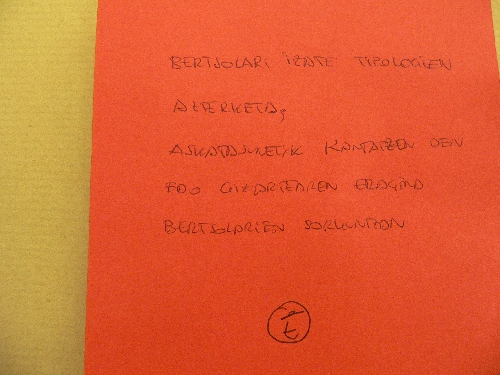 BERTSOLARI IZATE TIPOLOGIEN
AZTERKETA,
ASKATASUNETIK KANTATZEN DEN
EDO GIZARTEAREN ERAGINA
BERTSOLARIEN SORKUNTZAN